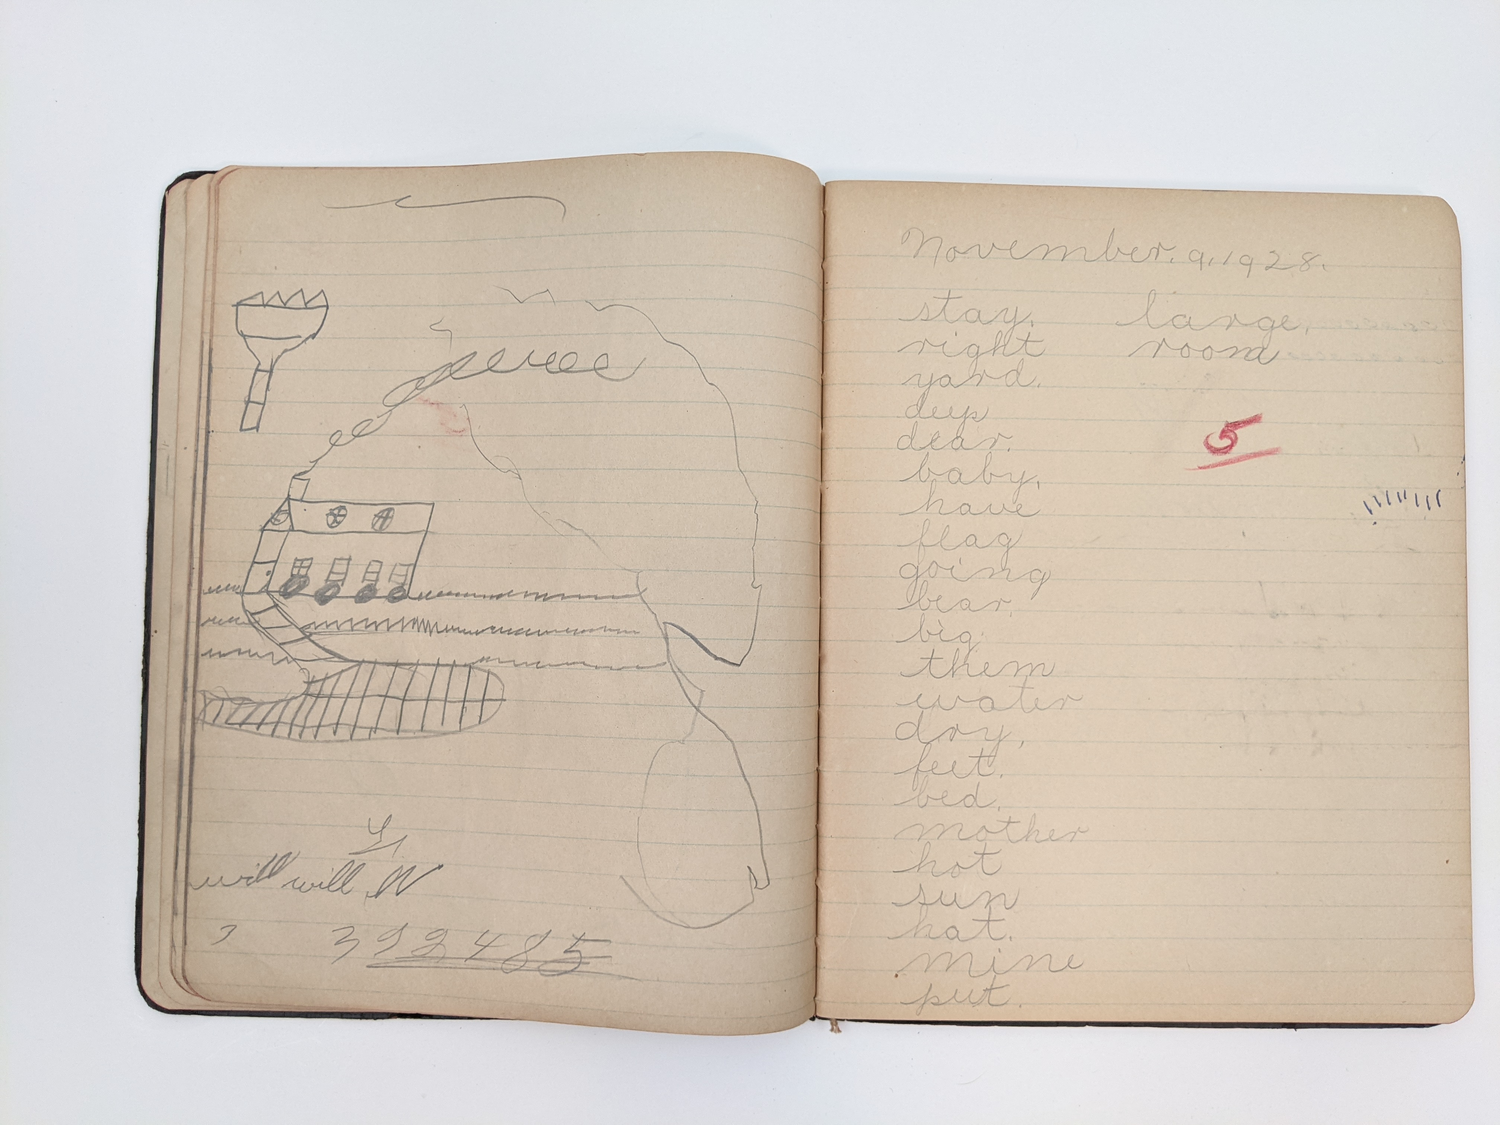 will will W
3
392485
November. 9, 1928.
stay. large,
right room
yard.
deep
dear.
baby,
have
flag
going
bear.
big
them
water
dry,
feet.
bed.
mother
hot
sun
hat.
mine
put.
5